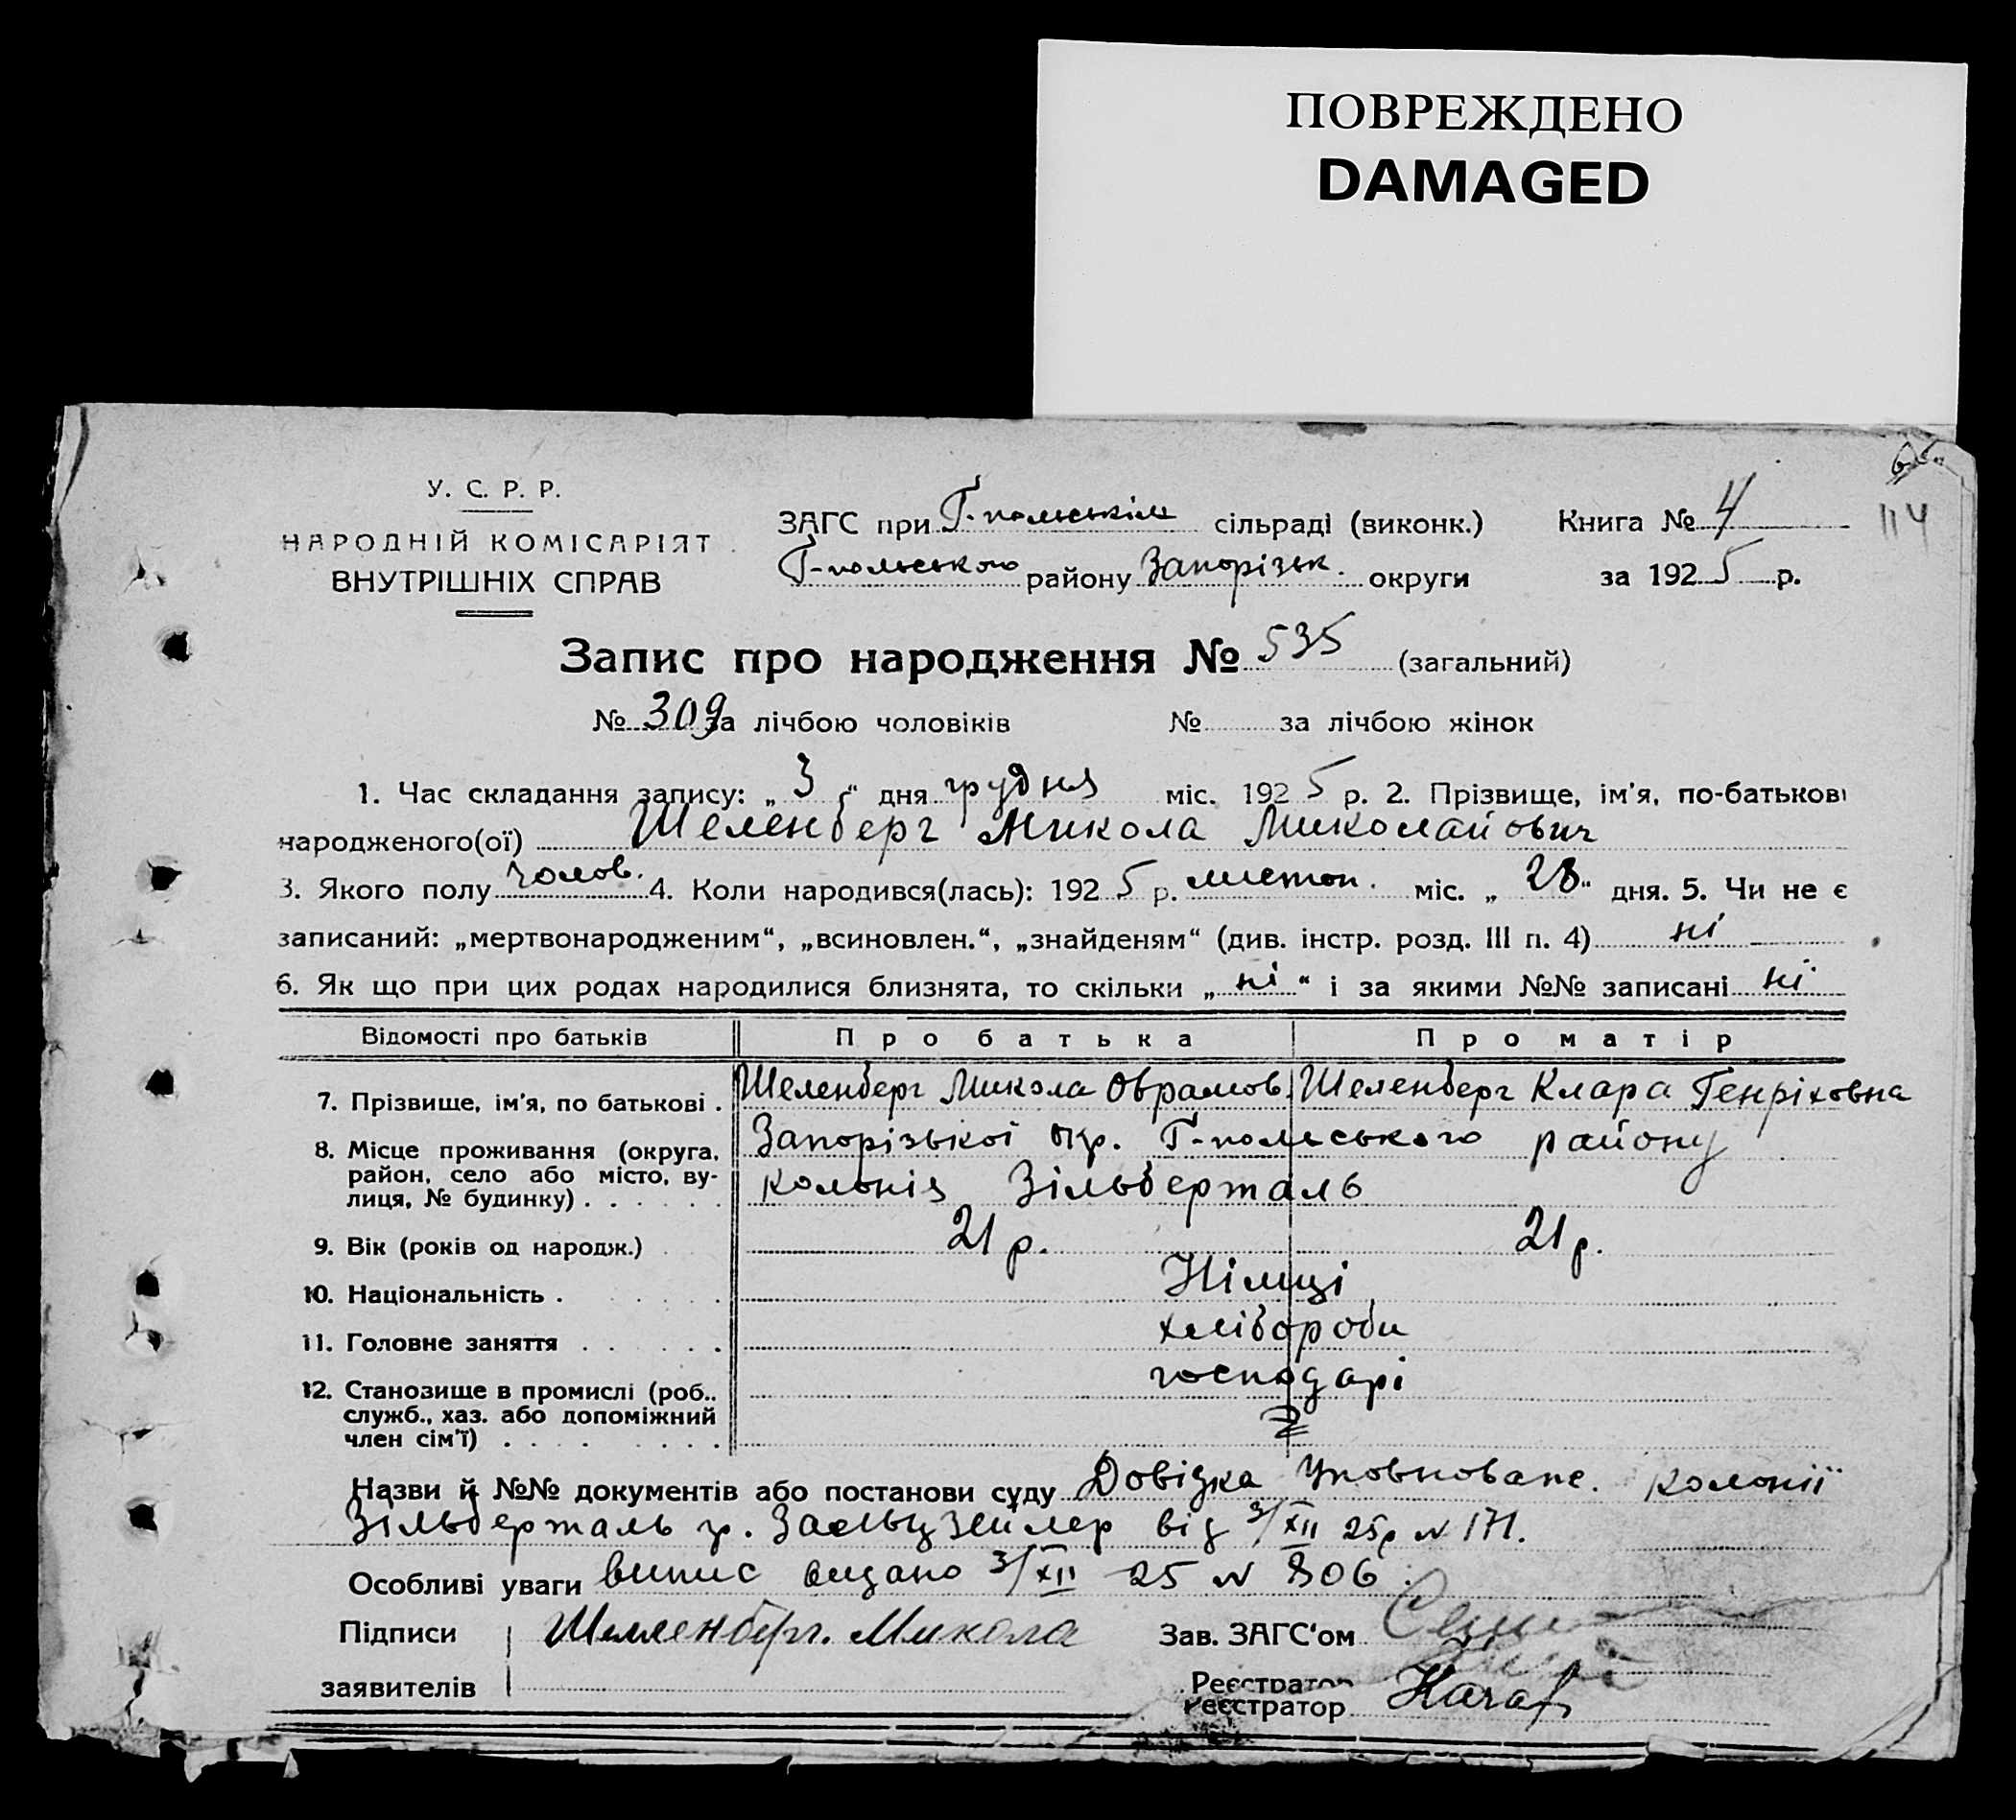 ПОВРЕЖДЕНО
DAMAGED
114
У. С. Р. Р.
НАРОДНІЙ КОМІСАРІЯТ
ВНУТРІШНІХ СПРАВ
ЗАГС при Г-польськім сільраді (виконк.) Книга № 4
Г-польського району Запорізьк. округи за 1925 р.
Запис про народження № 535 (загальний)
№ 309 за лічбою чоловіків № за лічбою жінок
1. Час складання запису: „ 3 " дня грудня міс. 1925 р. 2. Прізвище, ім'я, по-батькові
народженого(ої) Шеленберг Микола Миколайович
3. Якого полу чолов. 4. Коли народився(лась): 1925 р. листоп. міс. „ 28 " дня. 5. Чи не є
записаний: „мертвонародженим“, „всиновлен.“, „знайденям“ (див. інстр. розд. III п. 4) ні
6. Як що при цих родах народилися близнята, то скільки „ ні “ і за якими №№ записані ні
Відомості про батьків Про батька Про матір
7. Прізвище, ім'я, по батькові . Шеленберг Микола Обрамов. Шеленберг Клара Генріховна
8. Місце проживання (округа, Запорізької окр. Г-польського району
район, село або місто, ву-
лиця, № будинку) . . . . . . колонія Зільберталь
9. Вік (років од народж.) 21 р. 21 р.
10. Національність . Німці
11. Головне заняття . . . . . . хлібороби
12. Становище в промислі (роб.. господарі
служб., хаз. або допоміжний
член сім'ї) . . . . . . . .
Назви й №№ документів або постанови суду Довідка Уповноваже. колонії
Зільберталь гр. від 3/XII 25р № 171.
Особливі уваги випис видано 3/XII 25 № 806.
Підписи Шелленберг. Микола Зав. ЗАГС‘ом
заявителів Реєстратор
Реєстратор